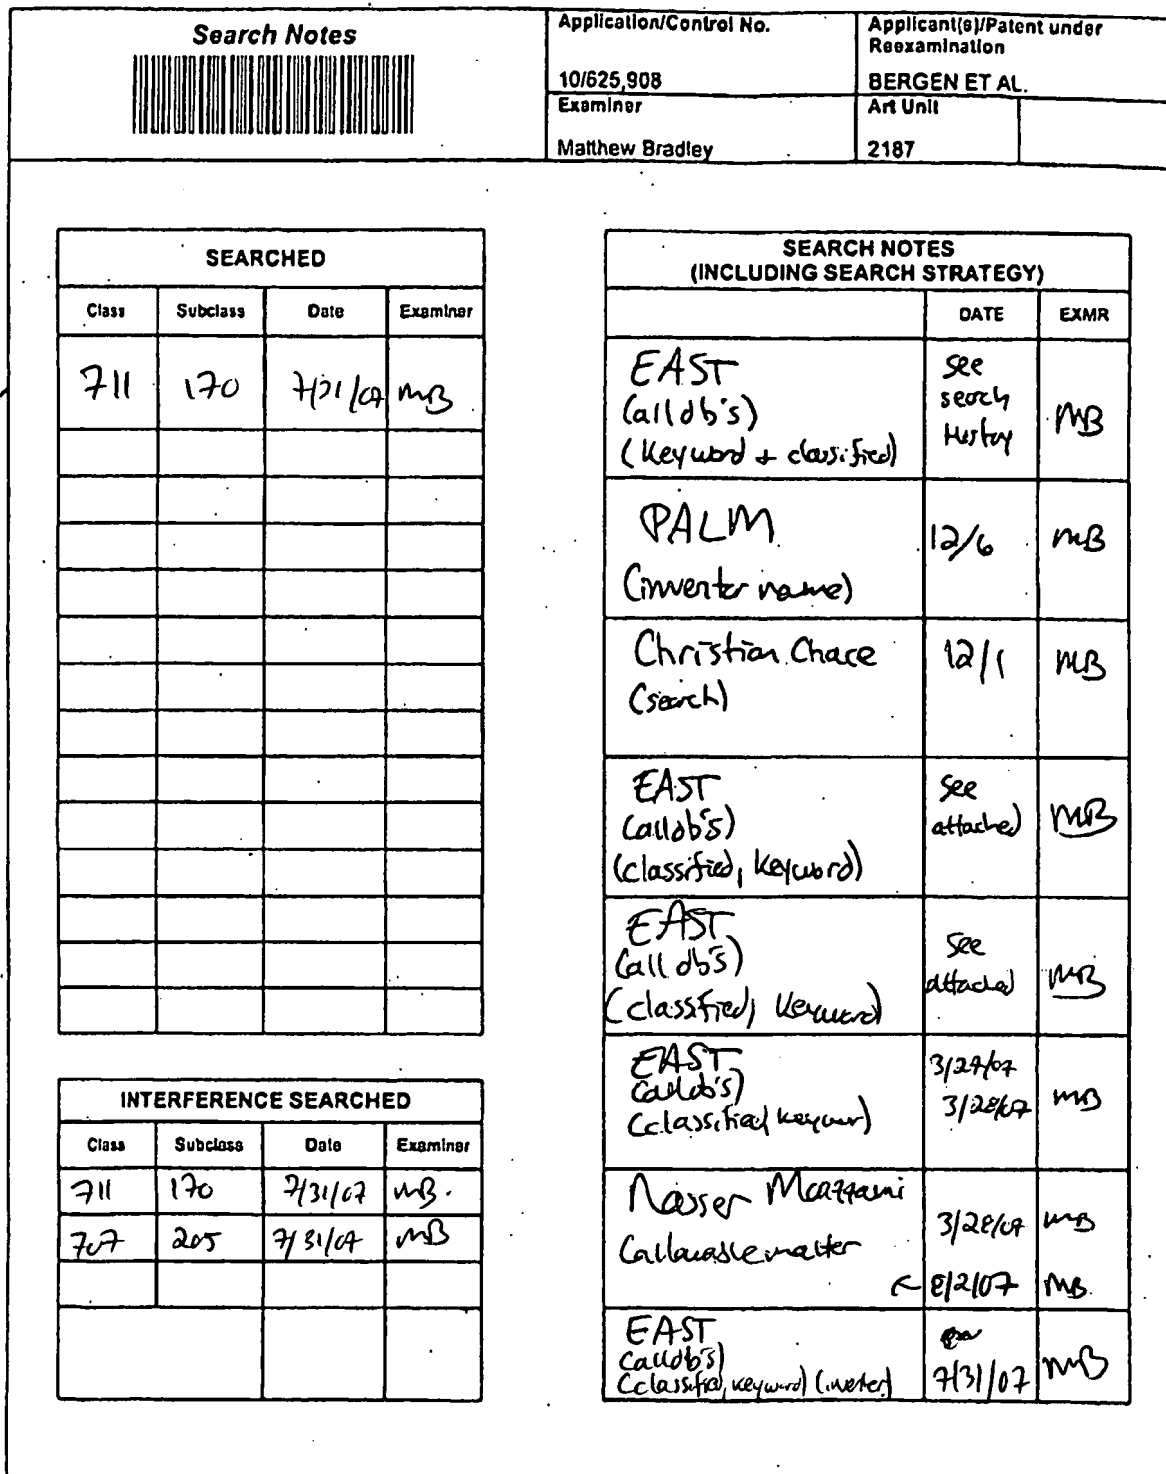 Search Notes
Application/Control No.
10/625,908
Applicant(s)/Patent under
Reexamination
BERGEN ET AL.
Examiner
Matthew Bradley
Art Unit
2187
SEARCHED
Class Subclass Date Examiner
711 170 7/31/07 MB
INTERFERENCE SEARCHED
Class Subclass Date Examiner
711 170 7/31/07 MB.
707 205 7/31/07 MB
SEARCH NOTES
(INCLUDING SEARCH STRATEGY)
DATE EXMR
EAST
(all db's)
(Keyword + classified)
see
search
History
MB
PALM
(inventor name)
12/6 MB
Christian Chace
(search)
12/1 MB
EAST
(all db's)
(classified, keyword)
see
attached
MB
EAST
(all db's)
(classified, keyword)
see
attached
MB
EAST
(all db's)
(classified, keyword)
3/27/07
3/28/07
MB
Nasser Moazzami
(allowable matter
3/28/07 MB
← 8/2/07 MB
EAST
(all db's)
(classified, keyword) (inventor)
7/31/07
MB